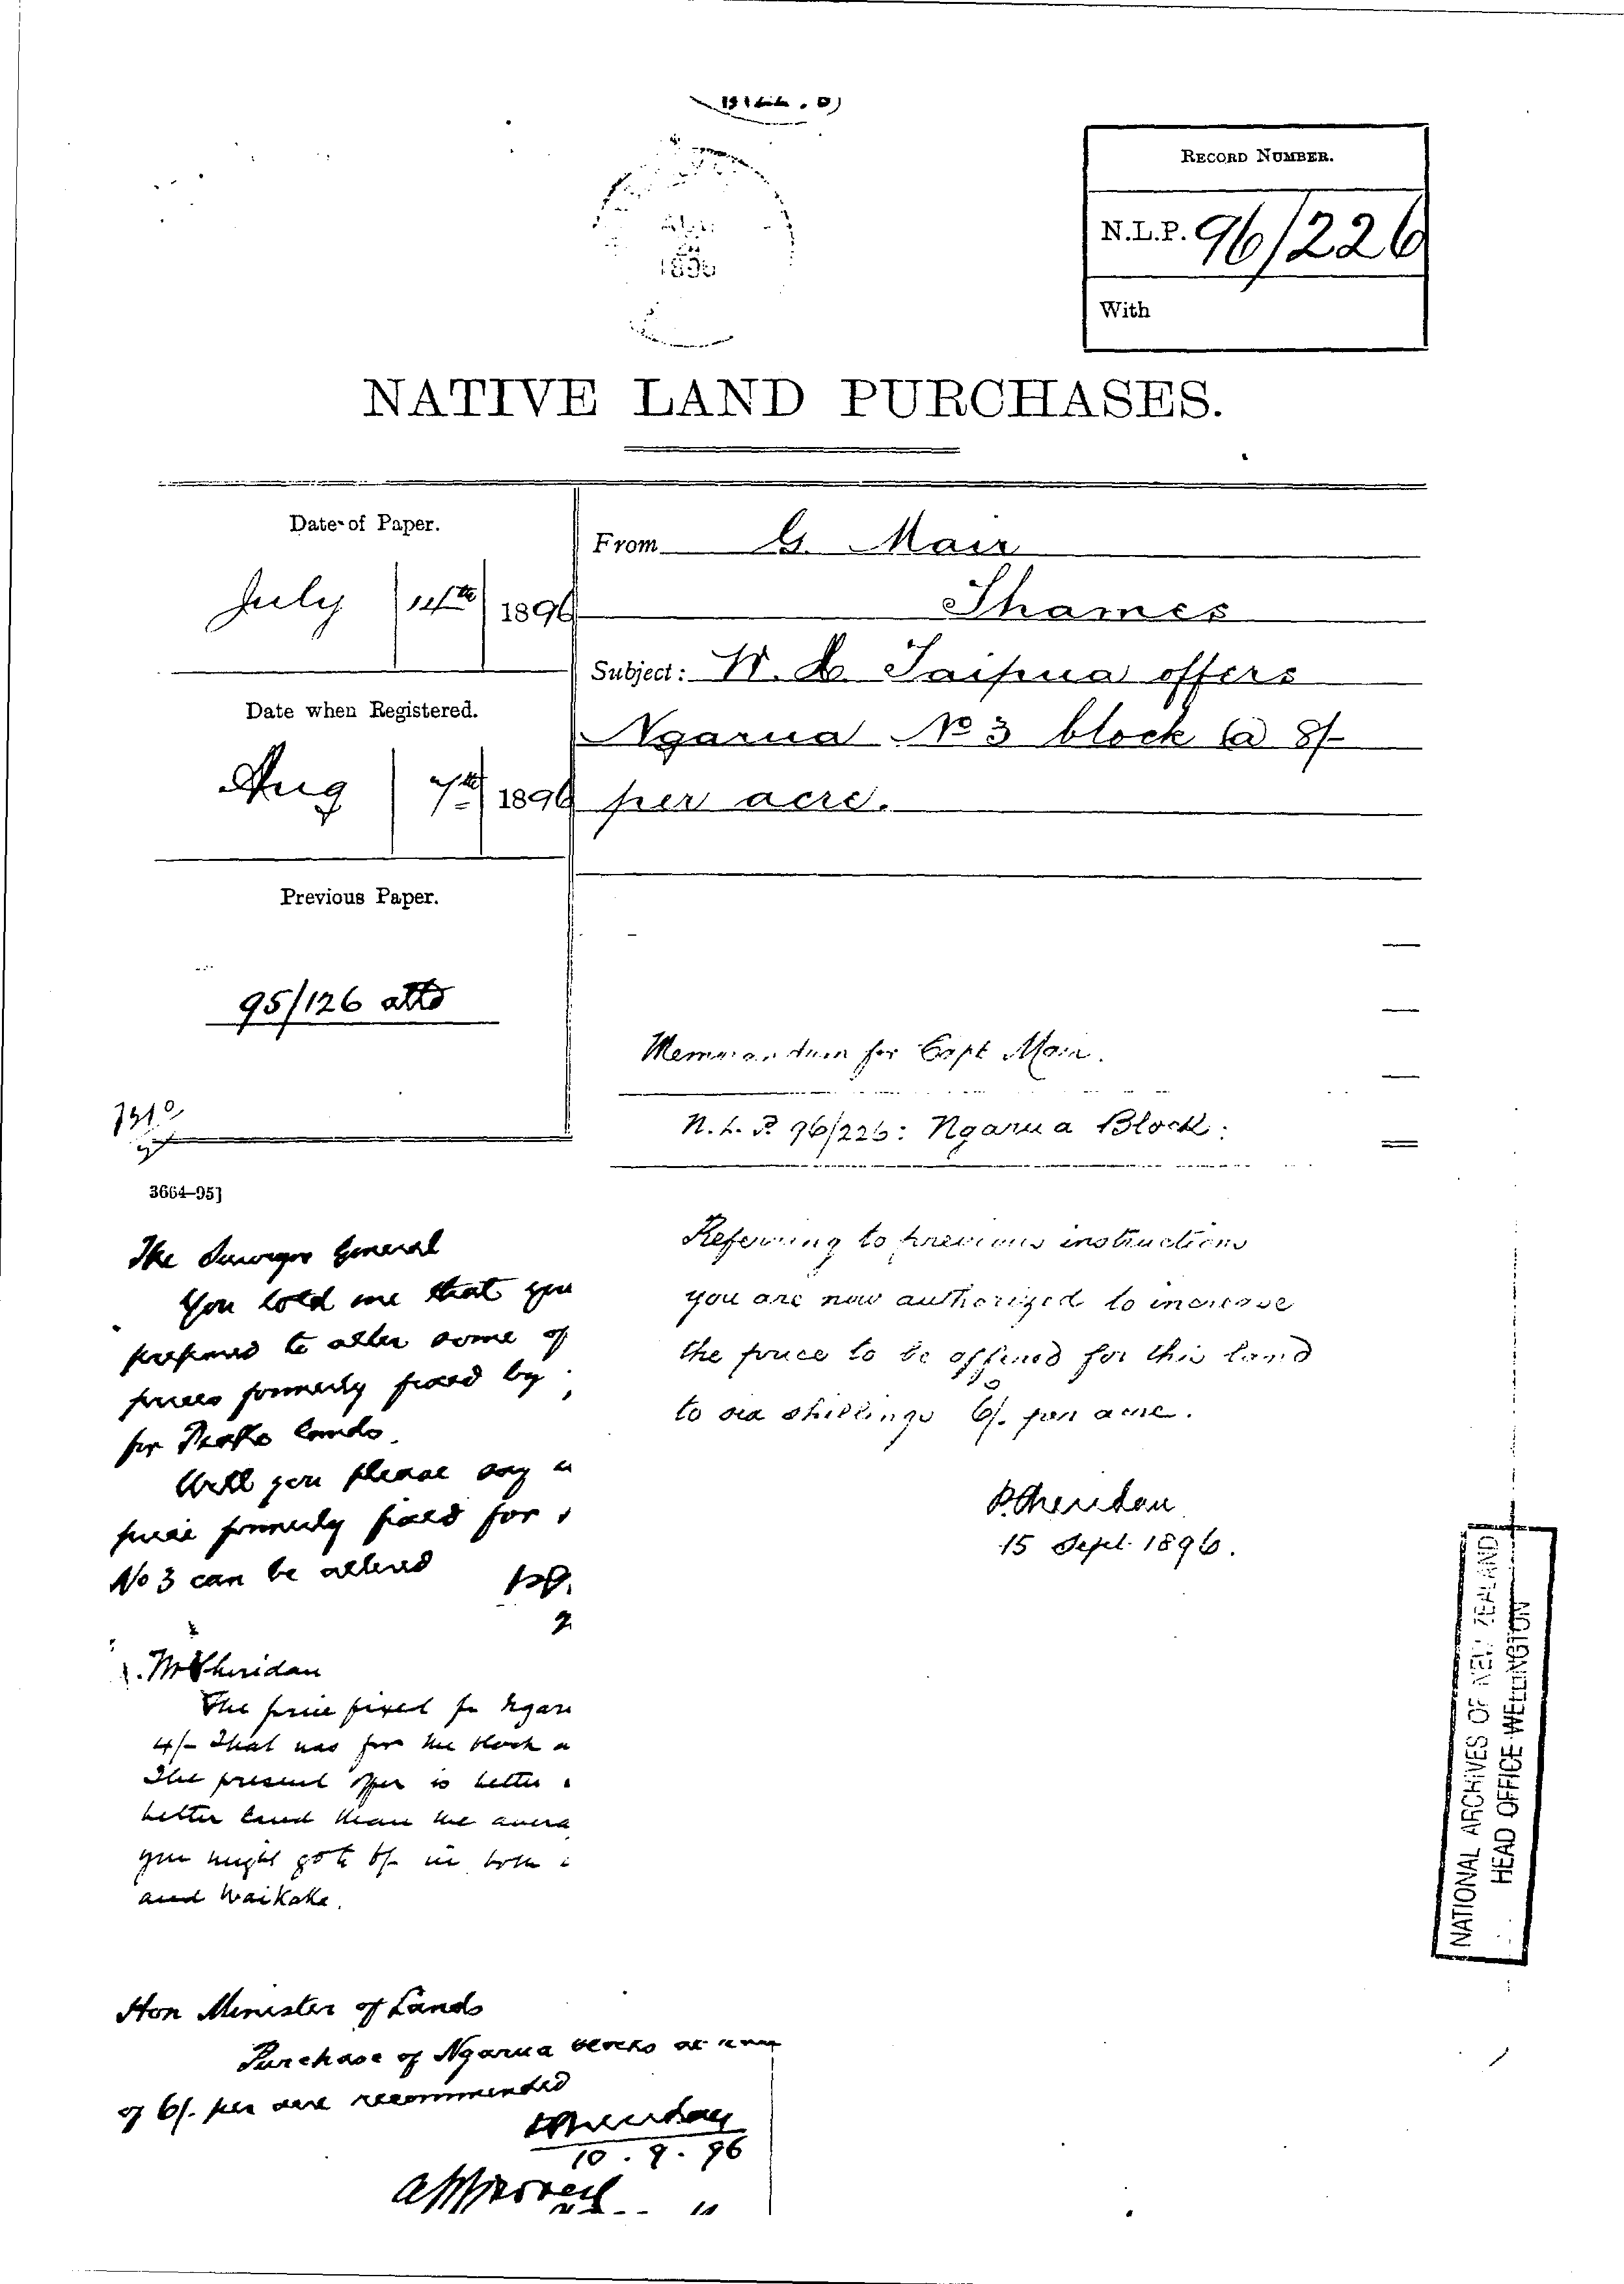 1896
RECORD NUMBER.
N.L.P. 96/226
With
NATIVE LAND PURCHASES.
Date of Paper.
July 14th 1896
Date when Registered.
Aug 7th 1896
Previous Paper.
95/126 attd
3664–95]
From G. Mair
Thames
Subject: W. H. Taipua offers
Ngarua No 3 block @ 8/-
per acre.
Memorandum for Capt Mair.
N.L.P. 96/226: Ngarua Block:
Referring to previous instructions
you are now authorized to increase
the price to be offered for this land
to six shillings 6/. per acre.
P. Sheridan
15 Sept. 1896.
The Surveyor General
You told me that you
prepared to alter some of
prices formerly fixed by
for lands
Will you please say
price formerly fixed for
No 3 can be altered
Mr Sheridan
The price fixed for Ngaru
4/- That was for the block a
The present offer is better
better land than the avera
you might go to 6/- in both
and Waikaka.
Hon Minister of Lands
Purchase of Ngarua blocks at
of 6/. per acre recommended
P Sheridan
10.9.96
Approved
NATIONAL ARCHIVES OF NEW ZEALAND
HEAD OFFICE WELLINGTON